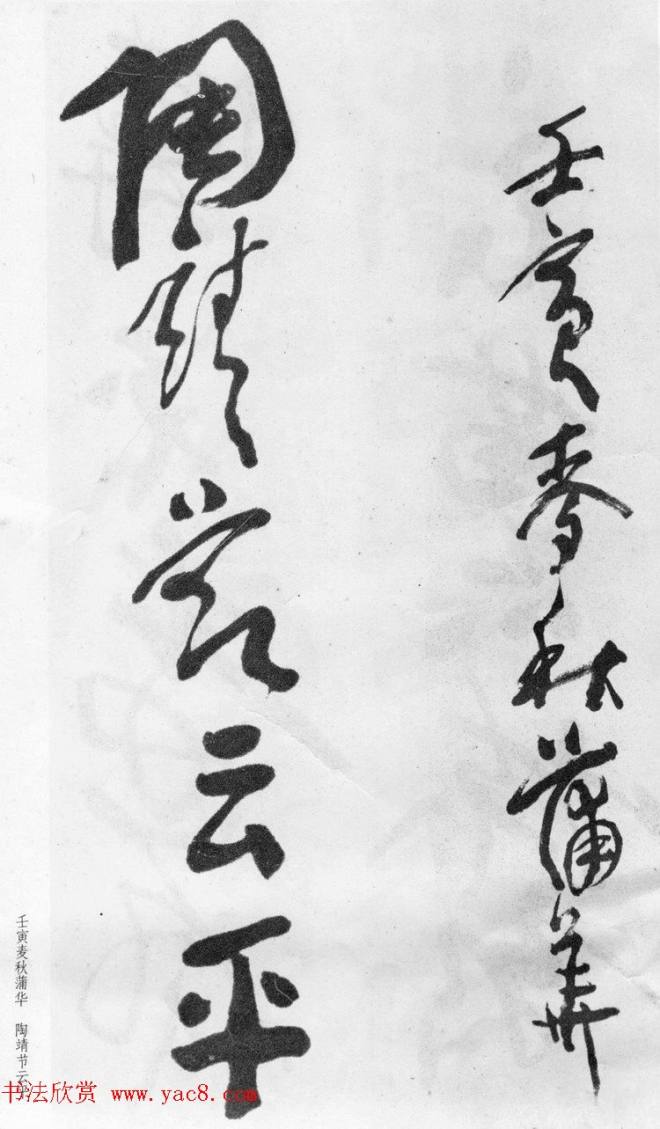 壬寅麥秋蒲華
陶靖節云平
壬寅麦秋蒲华 陶靖节云平
书法欣赏 www.yac8.com